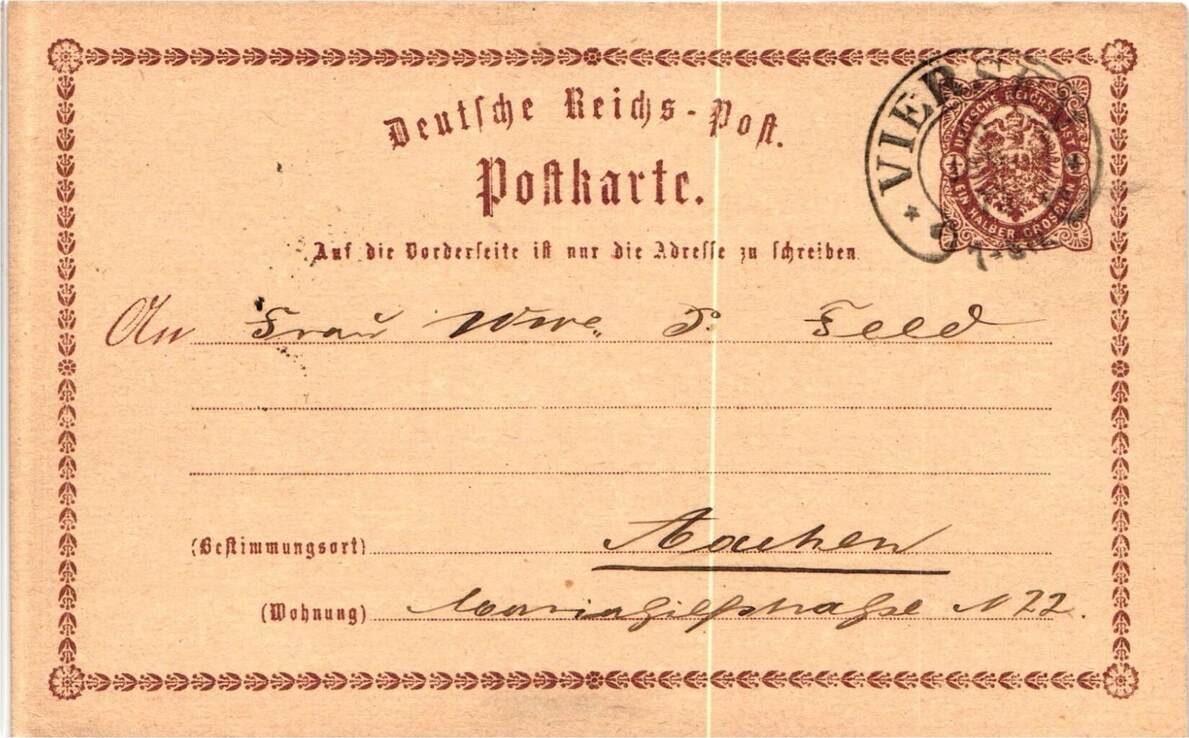 Deutsche Reichs-Post.
Postkarte.
VIERSE
DEUTSCHE REICHS-POST
EIN HALBER GROSCHEN
Auf die Vorderseite ist nur die Adresse zu schreiben
An Frau Wwe P. Feld
(Bestimmungsort) Aachen
(Wohnung) Mariahilfstraße N 22.